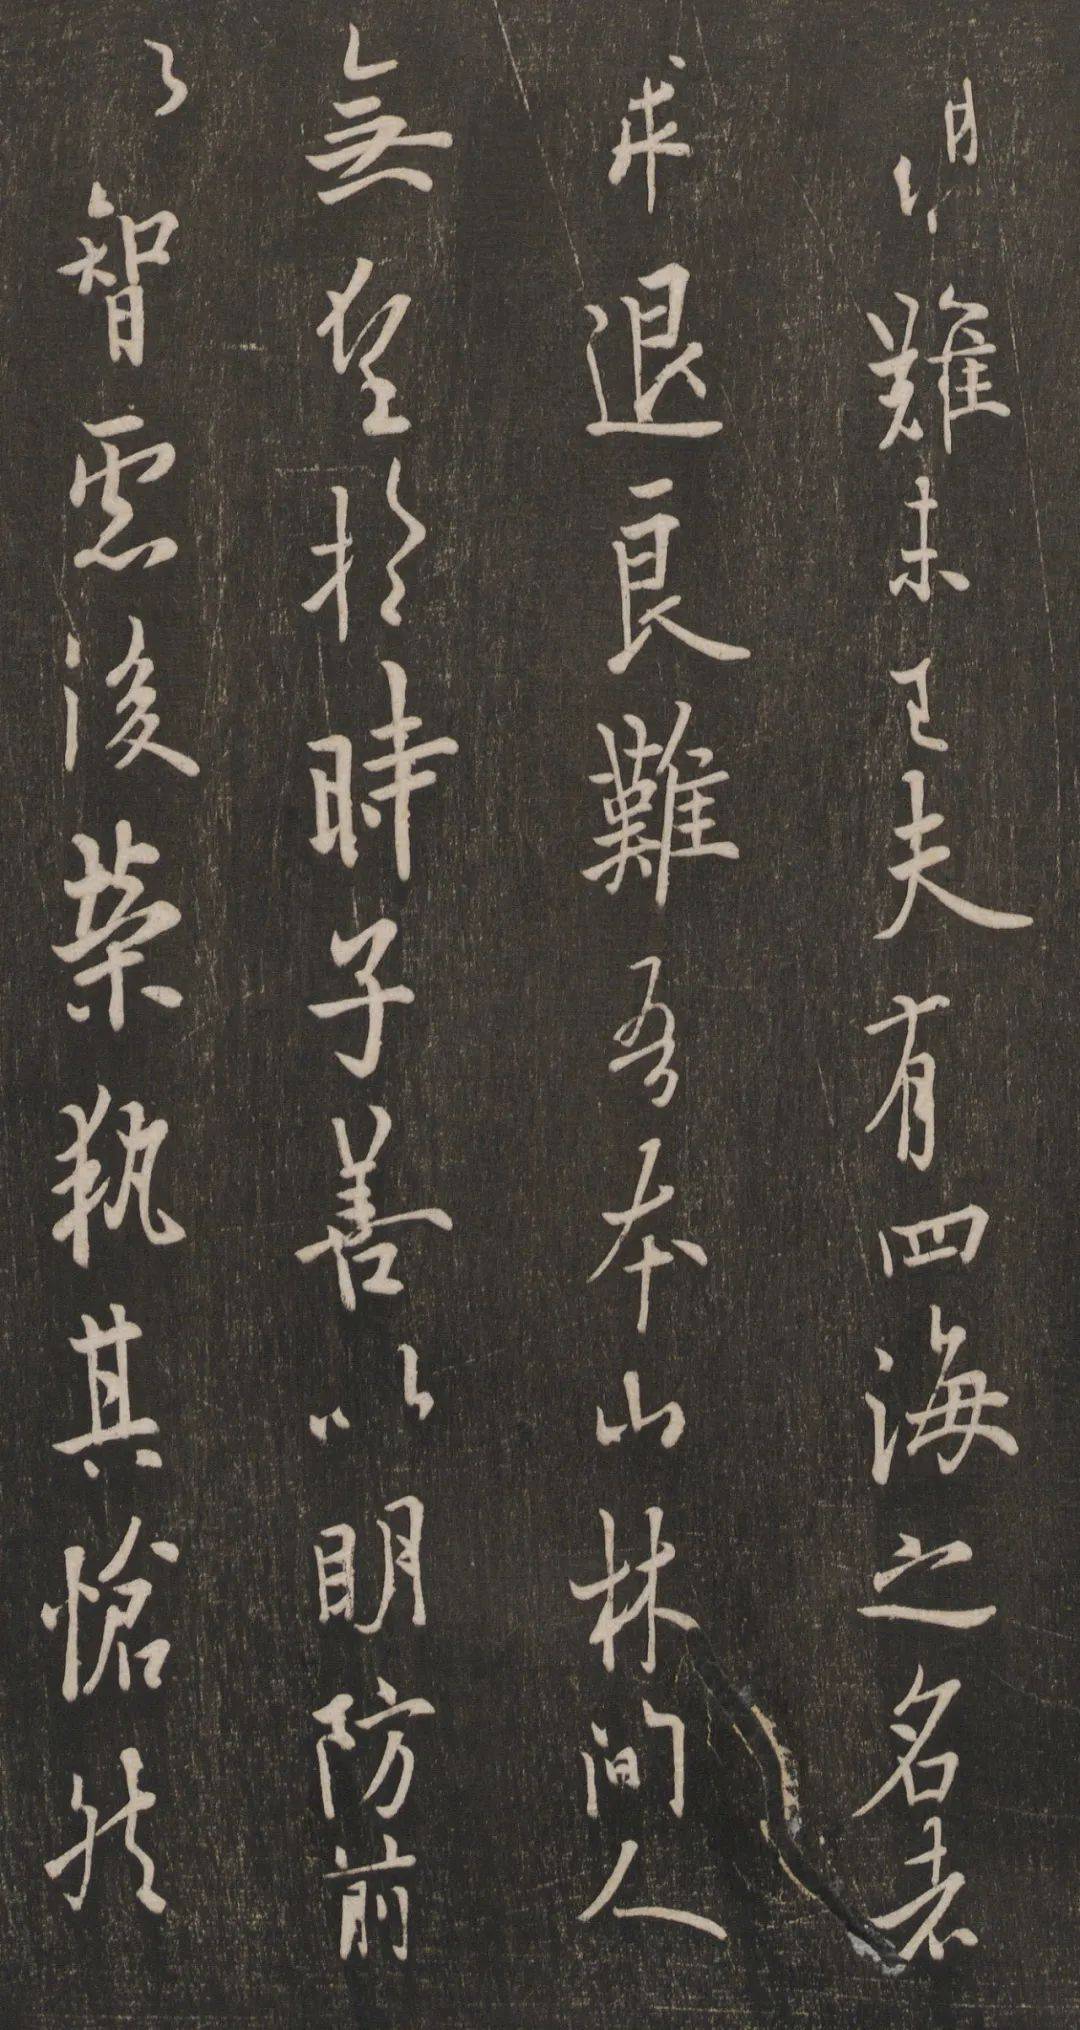 難未已夫有四海之名者
求退良難吾本山林間人
無望於時子善以明防前
以智慮後榮執其愴然